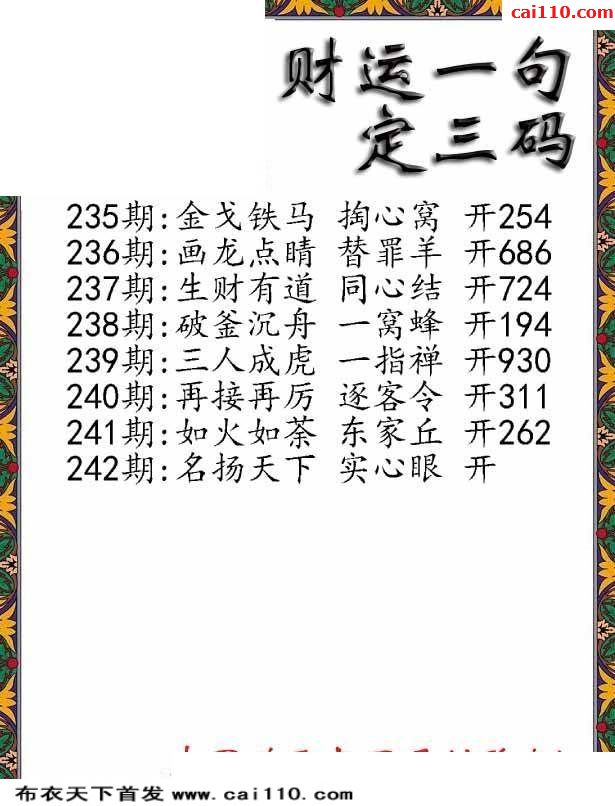 cai110.com
财运一句
定三码
235期:金戈铁马 掏心窝 开254
236期:画龙点睛 替罪羊 开686
237期:生财有道 同心结 开724
238期:破釜沉舟 一窝蜂 开194
239期:三人成虎 一指禅 开930
240期:再接再厉 逐客令 开311
241期:如火如荼 东家丘 开262
242期:名扬天下 实心眼 开
布衣天下首发 www.cai110.com